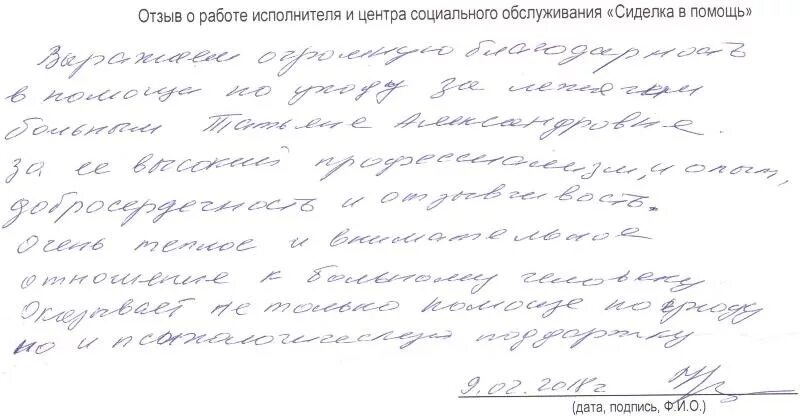 Отзыв о работе исполнителя и центра социального обслуживания «Сиделка в помощь»
Выражаем огромную благодарность
в помощи по уходу за лежачим
больным Татьяне Александровне.
за ее высокий профессионализм, и опыт,
добросердечность и отзывчивость.
Очень теплое и внимательное
отношение к больному человеку
Оказывает не только помощь по уходу
но и психологическую поддержку
9.02.2018г
(дата, подпись, Ф.И.О.)